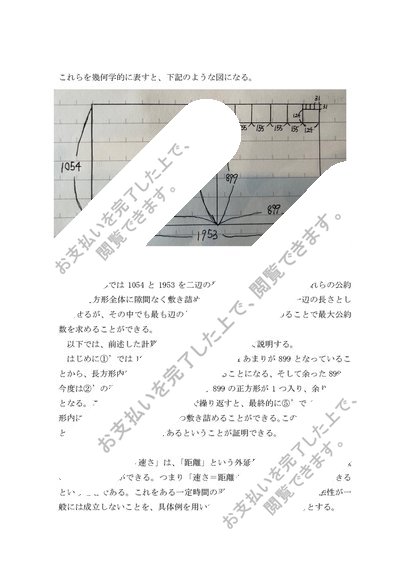 これらを幾何学的に表すと、下記のような図になる。
31
31
124
155 155 155 155 124
1054
899
899
1953
では 1054 と 1953 を二辺の れらの公約
方形全体に隙間なく敷き詰め 一辺の長さとし
せるが、その中でも最も辺の ることで最大公約
数を求めることができる。
以下では、前述した計算 説明する。
はじめに①’では あまりが 899 となっているこ
とから、長方形内 ることになる。そして余った 899
今度は②’の 899 の正方形が 1 つ入り、余り
となる。 で繰り返すと、最終的に⑤’で
形内に つ敷き詰めることができる。この
と あるということが証明できる。
速さ」は、「距離」という外延
ができる。つまり「速さ＝距離 きる
とい である。これをある一定時間の 法性が一
般には成立しないことを、具体例を用い とする。
お支払いを完了した上で、
閲覧できます。
お支払いを完了した上で、
閲覧できます。
お支払いを完了した上で、
閲覧できます。
お支払いを完了した上で、
閲覧できます。